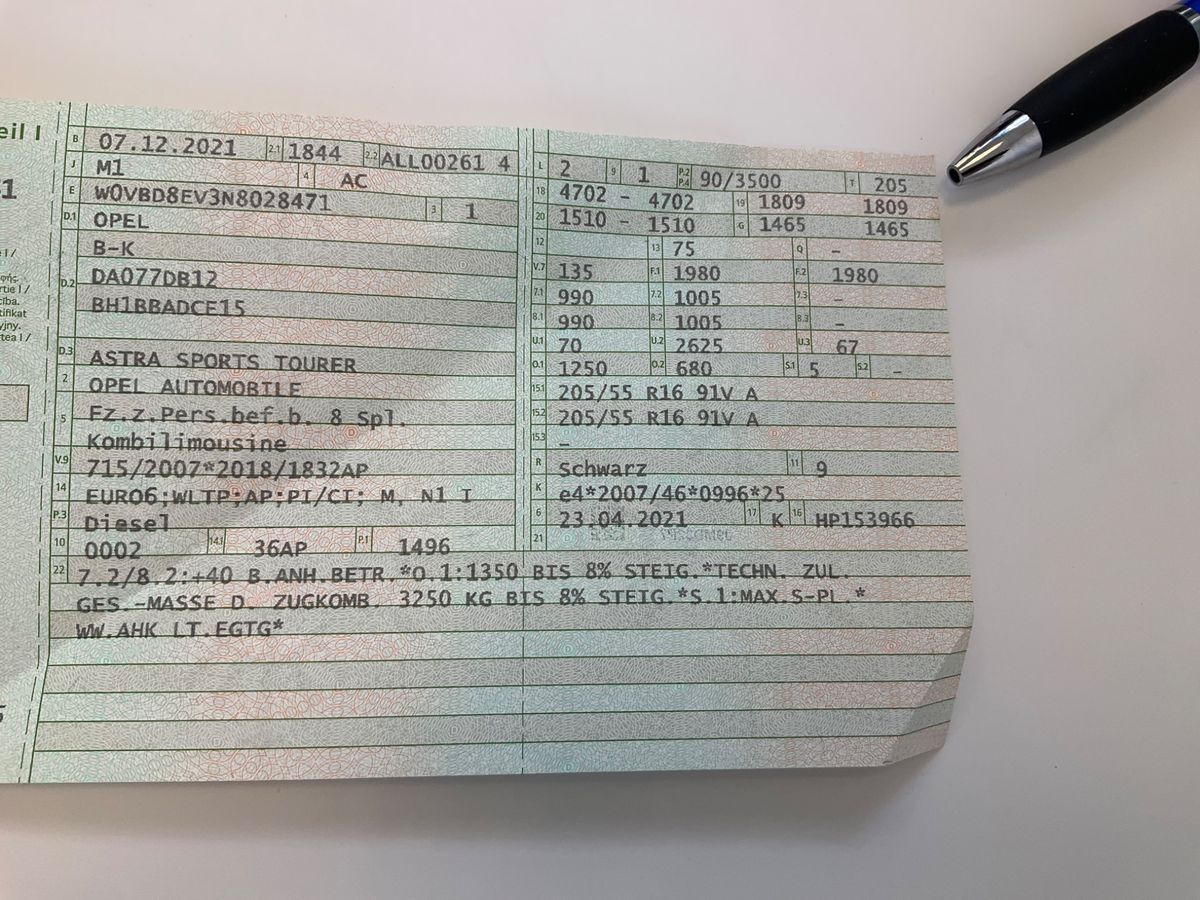 eil I
B 07.12.2021 2.1 1844 2.2 ALL00261 4
J M1 4 AC
E W0VBD8EV3N8028471 3 1
D.1 OPEL
B-K
D.2 DA077DB12
BH1BBADCE15
D.3 ASTRA SPORTS TOURER
2 OPEL AUTOMOBILE
5 Fz.z.Pers.bef.b. 8 Spl.
Kombilimousine
V.9 715/2007*2018/1832AP
14 EURO6;WLTP;AP;PI/CI; M, N1 I
P.3 Diesel
10 0002 14.1 36AP P.1 1496
L 2 9 1 P.2 P.4 90/3500 T 205
18 4702 - 4702 19 1809 1809
20 1510 - 1510 G 1465 1465
12 13 75 Q -
V.7 135 F.1 1980 F.2 1980
7.1 990 7.2 1005 7.3 -
8.1 990 8.2 1005 8.3 -
U.1 70 U.2 2625 U.3 67
O.1 1250 O.2 680 S.1 5 S.2 -
15.1 205/55 R16 91V A
15.2 205/55 R16 91V A
15.3 -
R Schwarz 11 9
K e4*2007/46*0996*25
6 23.04.2021 17 K 16 HP153966
21
22 7.2/8.2:+40 B.ANH.BETR.*O.1:1350 BIS 8% STEIG.*TECHN. ZUL.
GES.-MASSE D. ZUGKOMB. 3250 KG BIS 8% STEIG.*S.1:MAX.S-PL.*
WW.AHK LT.EGTG*